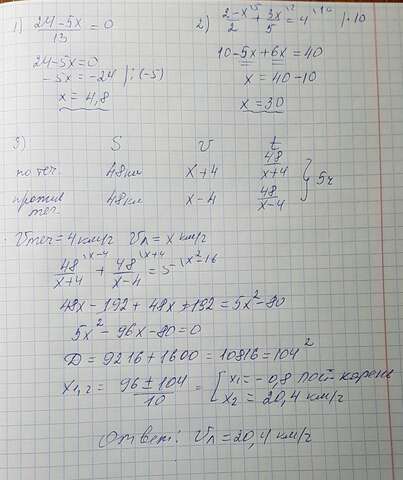 1) (24-5x)/13 = 0
24-5x=0
-5x=-24 | :(-5)
x = 4,8
2) (2-x)/2 \5 + 3x/5 \2 = 4 \10 | ·10
10-5x+6x=40
x = 40-10
x = 30
3) S V t
по теч. 48км x+4 48/(x+4)
против теч. 48км x-4 48/(x-4) } 5ч
Vтеч=4 км/ч Vл=x км/ч
48/(x+4) \x-4 + 48/(x-4) \x+4 = 5 \x²-16
48x-192+48x+192=5x²-80
5x²-96x-80=0
D=9216+1600=10816=104²
x1,2 = (96±104)/10 = [ x1=-0,8 пост. корень
x2=20,4 км/ч
Ответ: Vл=20,4 км/ч